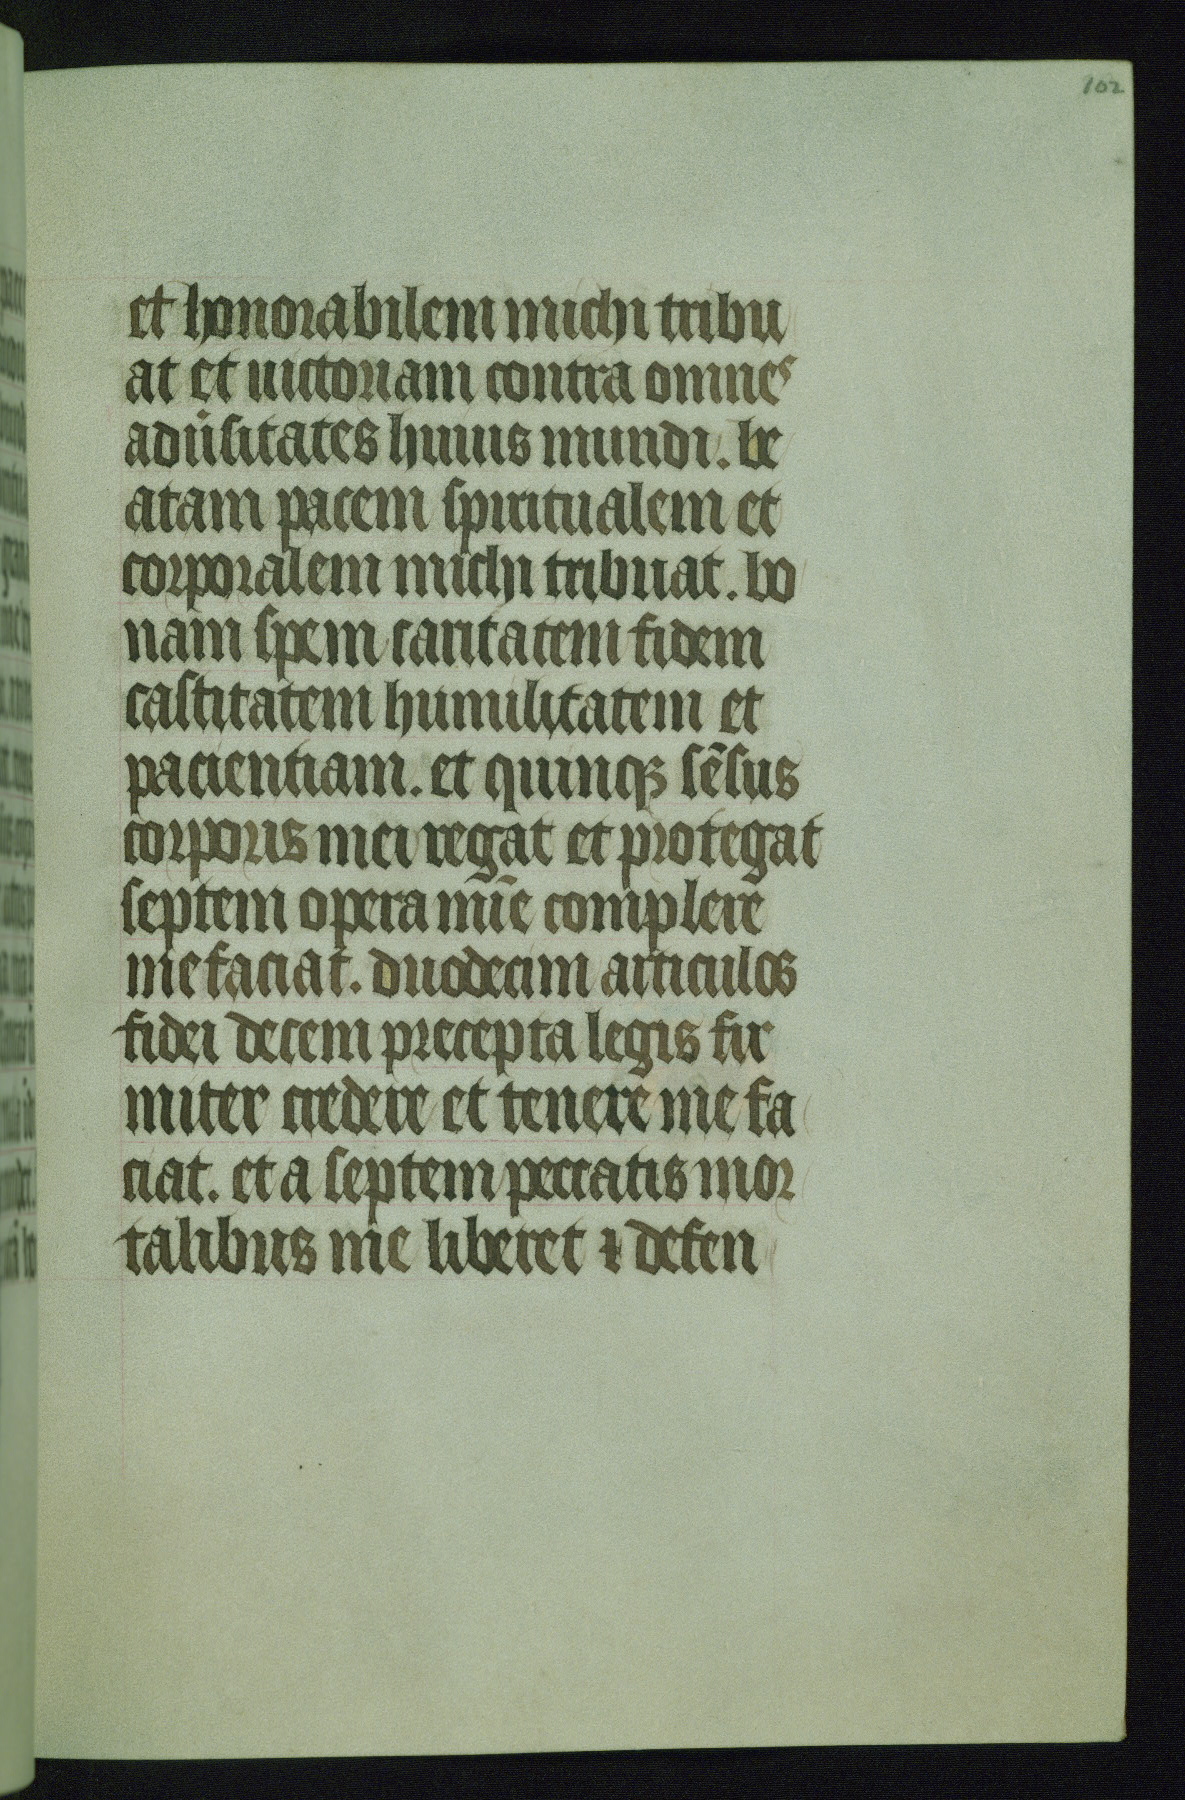 102
et honorabilem michi tribu
at et uictoriam contra omnes
adu͛sitates huius mundi. be
atam pacem spiritualem et
corporalem michi tribuat. bo
nam spem caritatem fidem
castitatem humilitatem et
pacientiam. et quinqꝫ sēsus
corporis mei regat et protegat
septem opera mīe complere
me faciat. duodecim articulos
fidei decem precepta legis fir
miter credere et tenere me fa
ciat. et a septem peccatis mor
talibus me liberet ⁊ defen